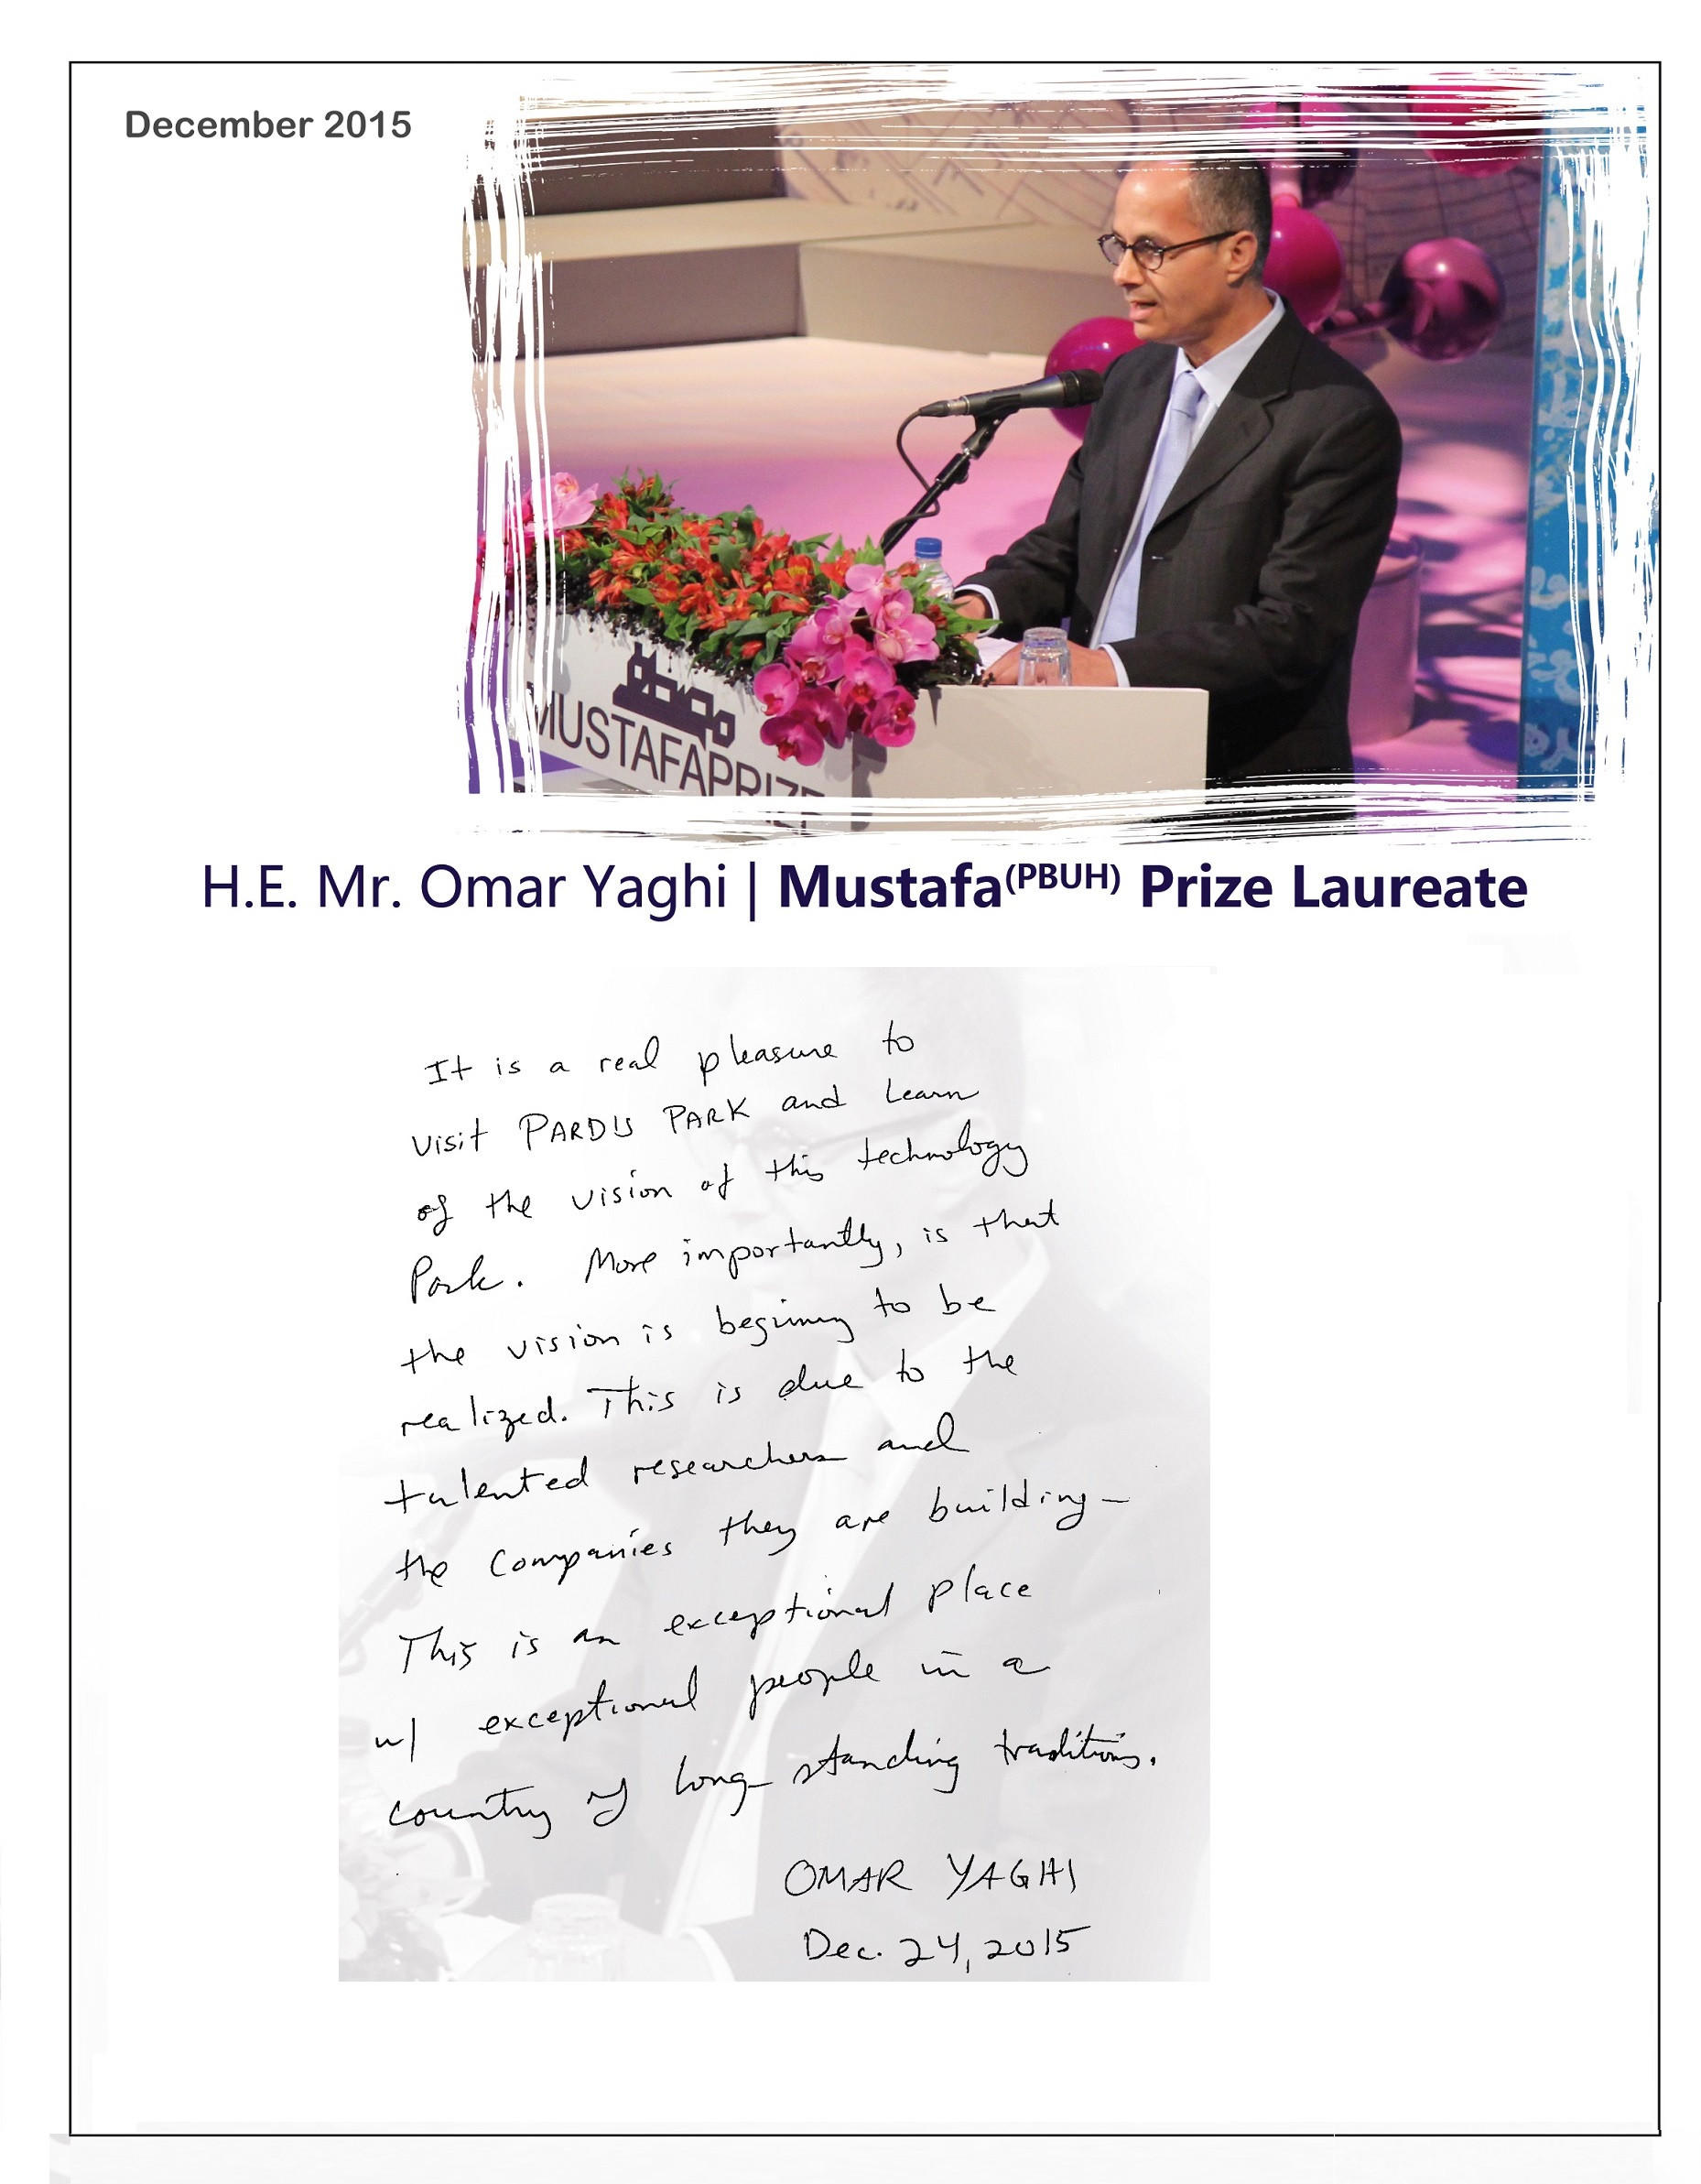 December 2015
MUSTAFAPRIZE
H.E. Mr. Omar Yaghi | Mustafa(PBUH) Prize Laureate
It is a real pleasure to
visit PARDIS PARK and learn
of the vision of this technology
Park. More importantly, is that
the vision is begining to be
realized. This is due to the
talented researchers and
the companies they are building-
This is an exceptional place
w/ exceptional people in a
country of long-standing traditions.
OMAR YAGHI
Dec. 24, 2015